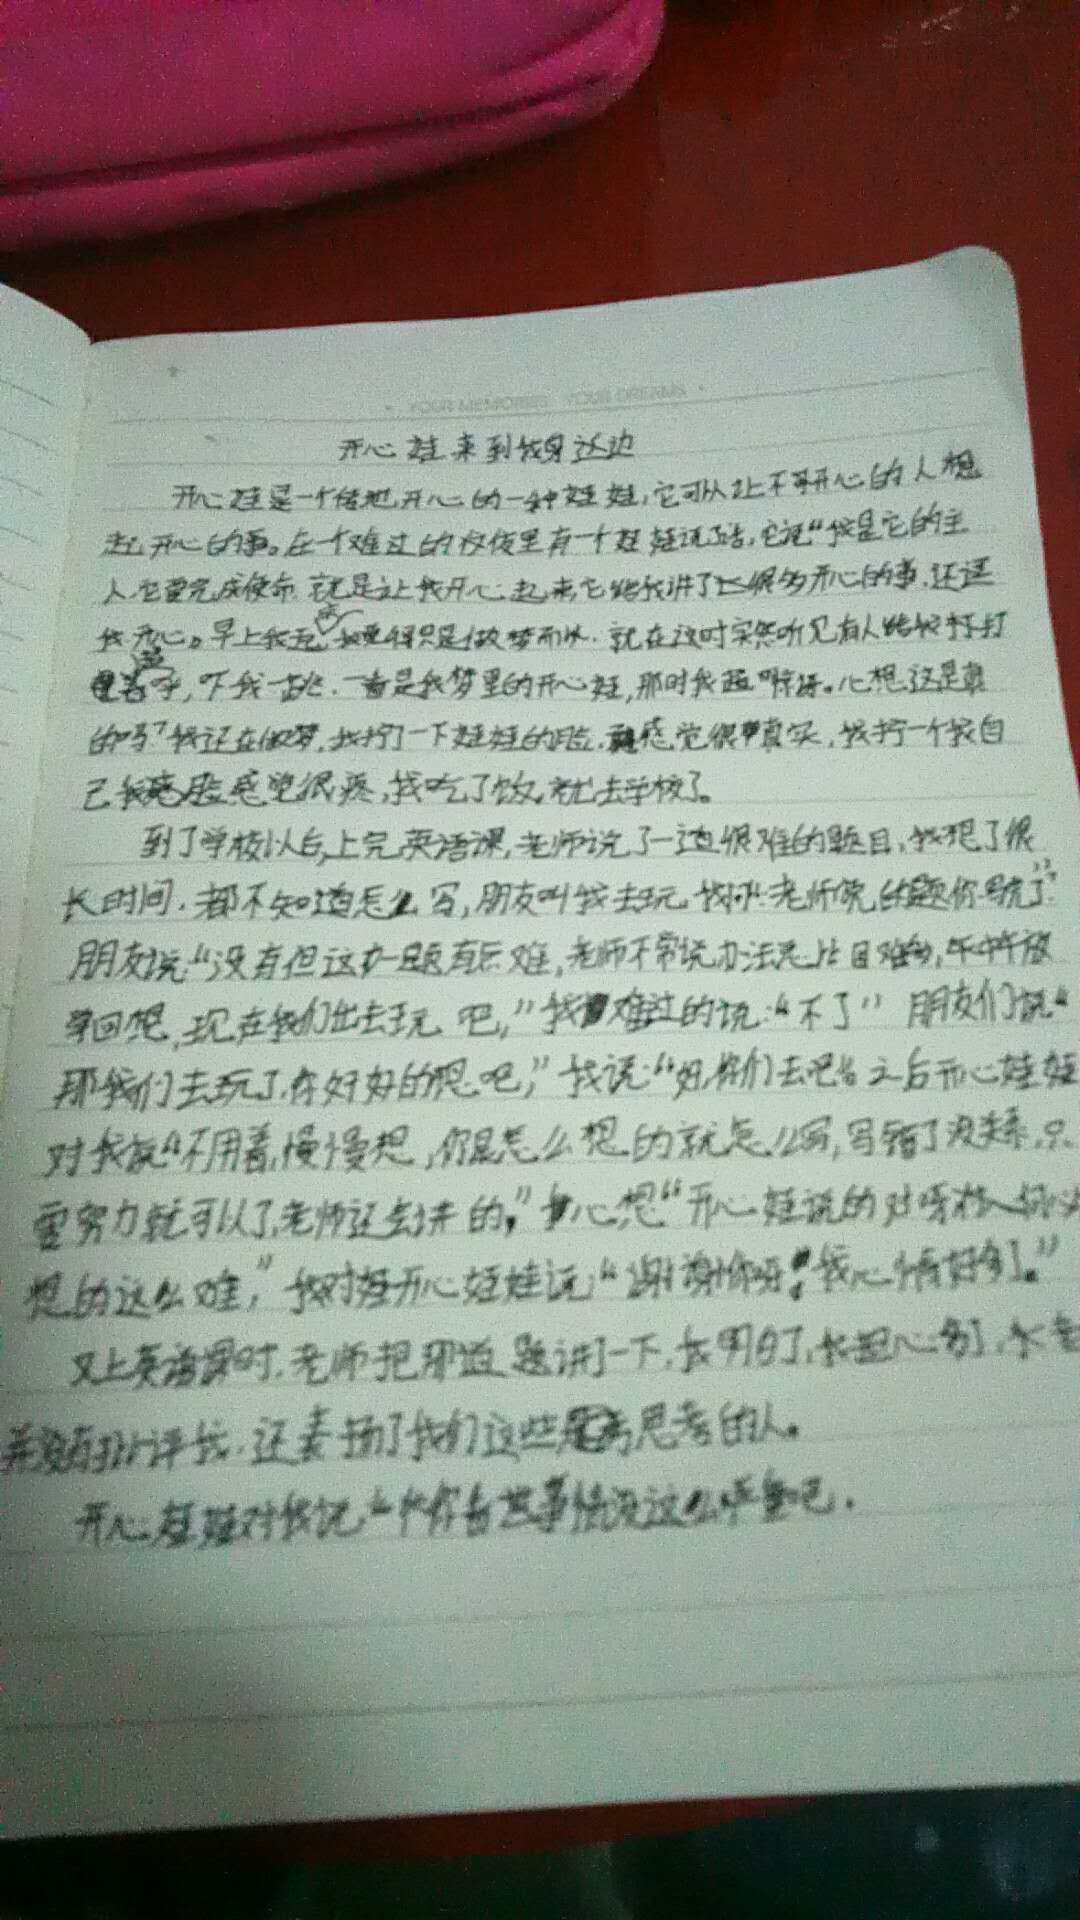 开心娃来到我身边
开心娃是一个传递开心的一种娃娃,它可以让不开心的人想
起开心的事。在一个难过的夜里有一个娃娃说话,它说"我是它的主
人它要完成使命 就是让我开心起来,它给我讲了很多开心的事,还逗
我开心。早上我 我觉得只是做梦而以,就在这时突然听见有人给我打
招呼,吓我一跳,一看是我梦里的开心娃,那时我超惊讶。心想这是真
的吗?我还在做梦,我拧了一下娃娃的脸,感觉很真实,我拧一个我自
己 脸感觉很疼,我吃了饭,就去学校了。
到了学校以后,上完英语课,老师说了一道很难的题目,我想了很
长时间,都不知道怎么写,朋友叫我去玩,我问:老师说的题你写完了"
朋友说"没有但这 题有点难,老师不常说办法总比 难多,中午放
学回想,现在我们出去玩吧,"我难过的说:"不了"朋友们说"
那我们去玩了,你好好的想吧,"我说"好,你们去吧"之后开心娃娃
对我说"不用着,慢慢想,你是怎么想的就怎么写,写错了没关系,只
要努力就可以了,老师还会讲的,"心想"开心娃说的对呀
想的这么难,"我对开心娃娃说"谢谢你呀!我心情好多了。"
又上英语课时,老师把那道题讲了一下,我明白了,
并没有批评我,还表扬了我们这些思考的人。
开心娃娃对我说" 你看 事情没这么严重吧.